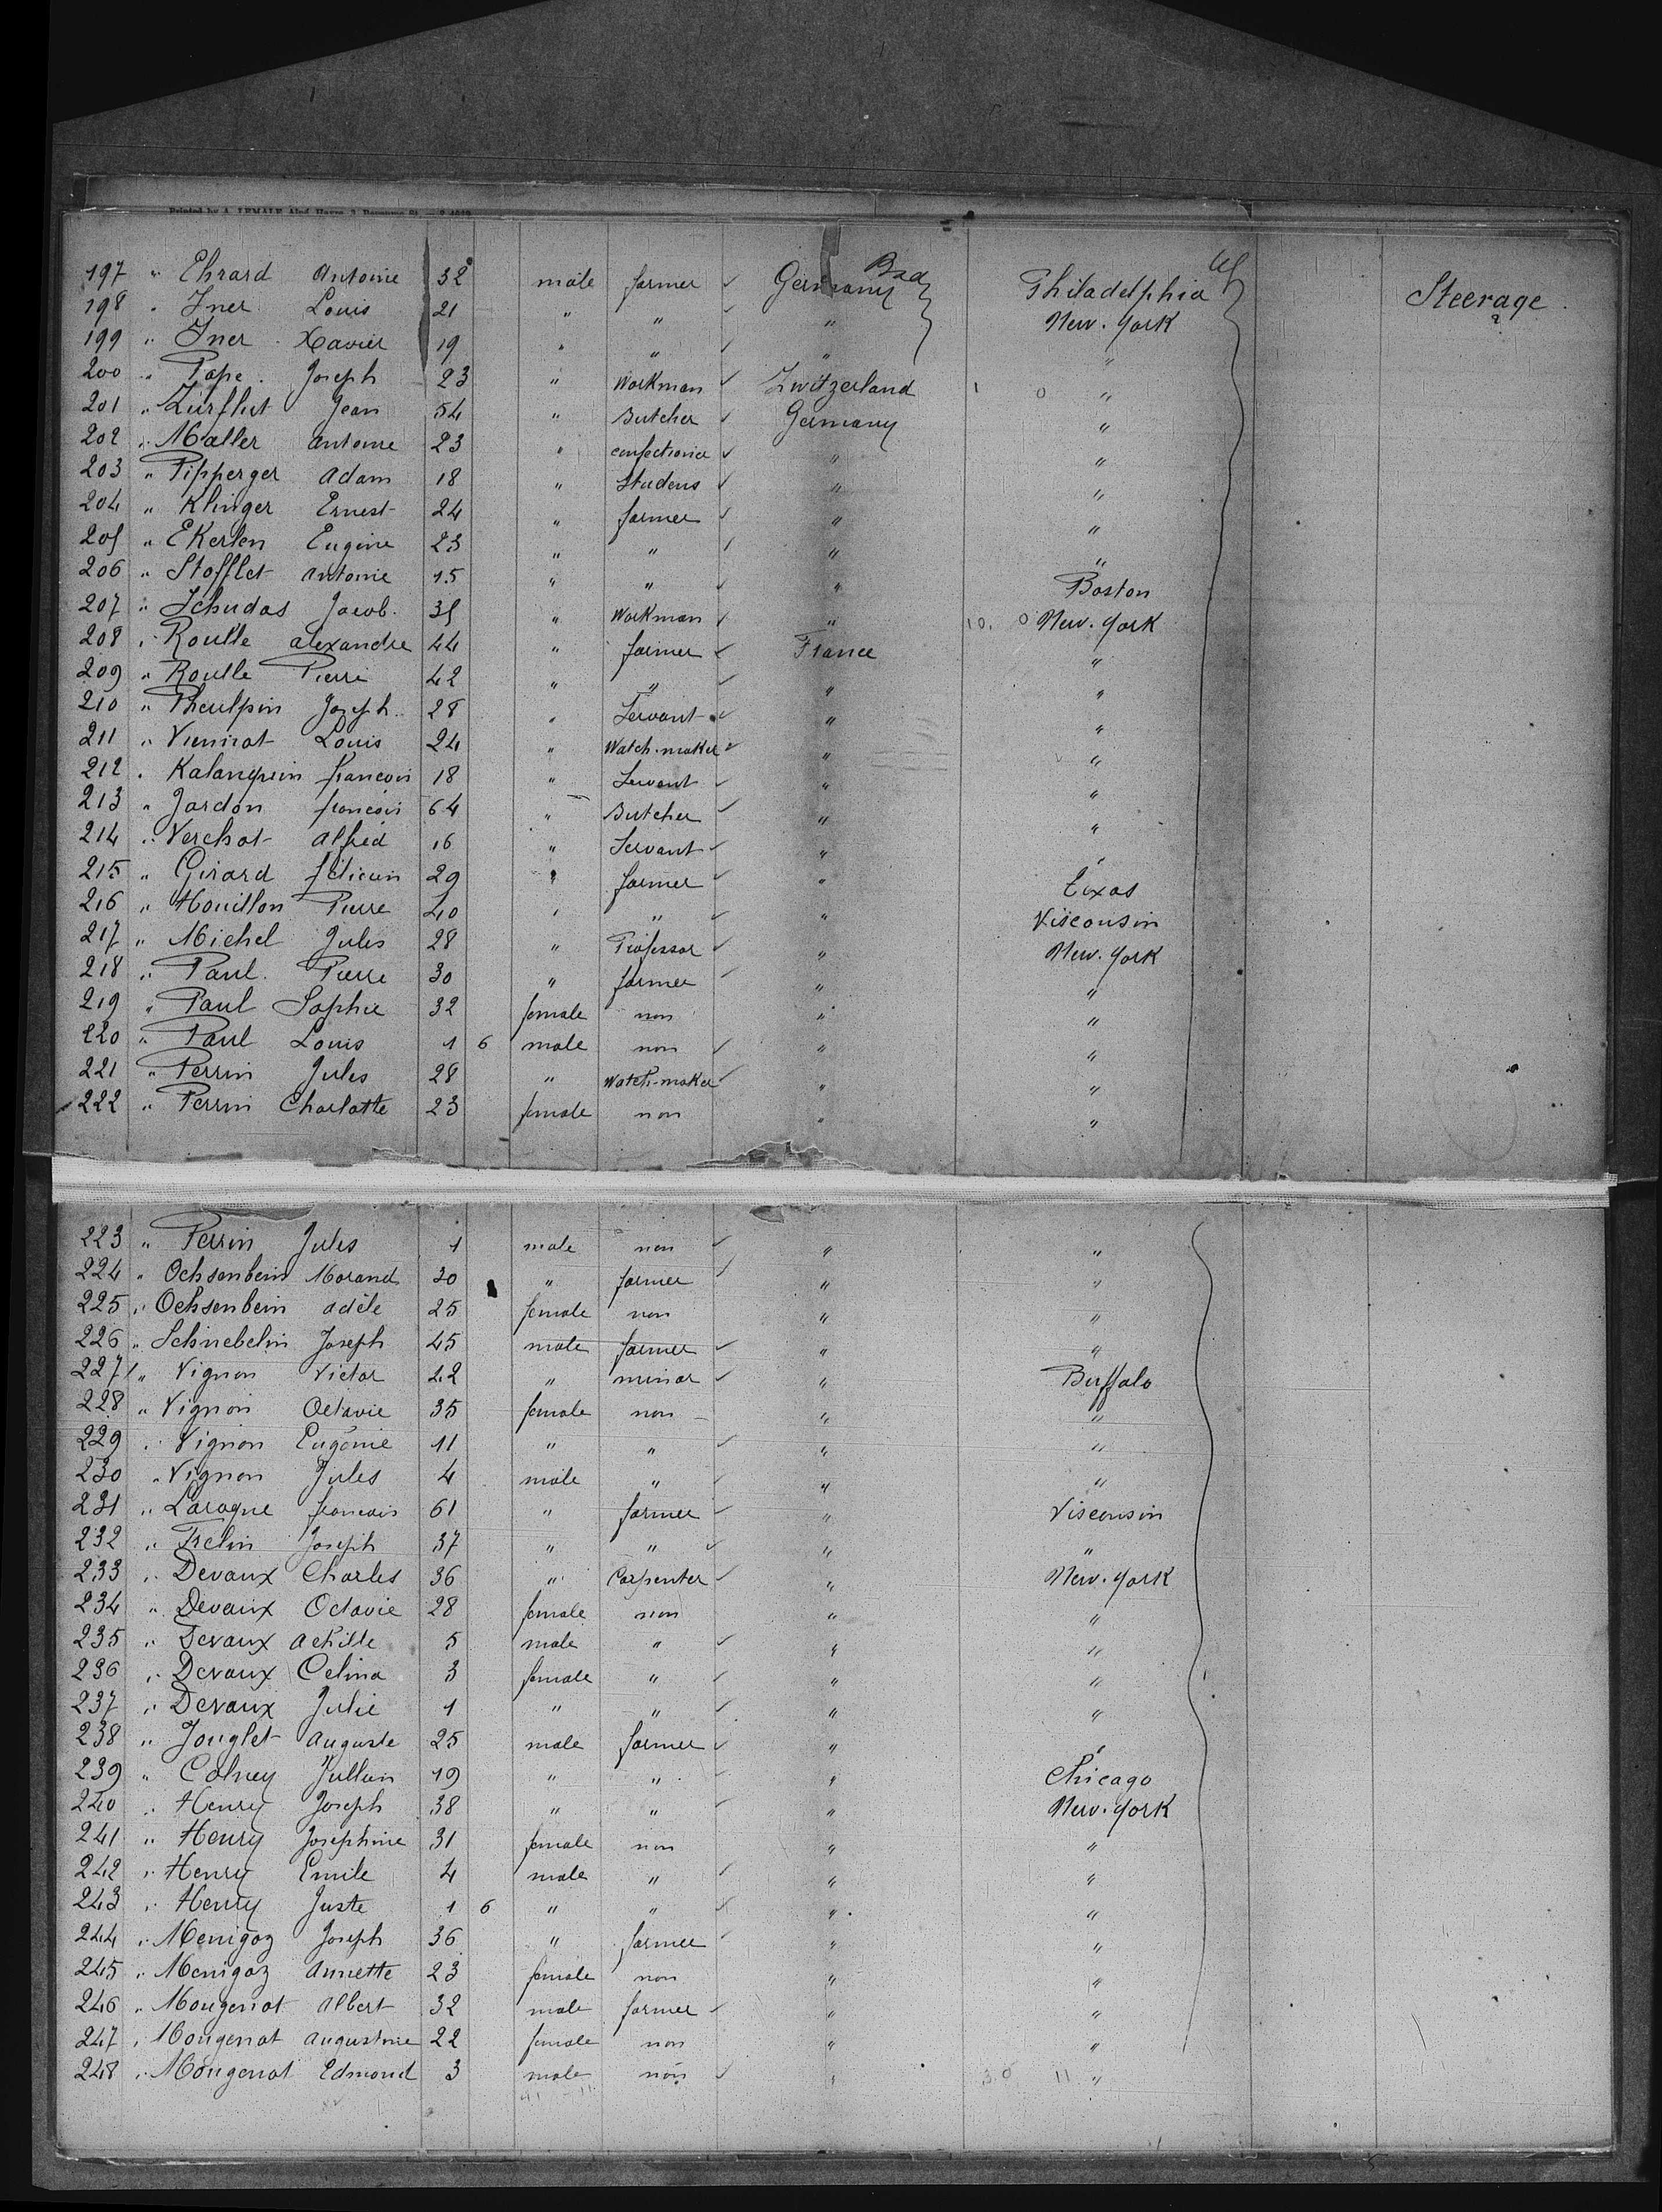 Printed by A. LEMALE Aîné, Havre, 3,
197 " Ehrard Antoine 32 male farmer ✓ Germany Bad Philadelphia Steerage
198 " Iner Louis 21 " " ✓ " New-York
199 " Iner Xavier 19 " " ✓ " "
200 " Pape Joseph 23 " Workman ✓ Zwitzerland "
201 " Zurflut Jean 54 " Butcher ✓ Germany "
202 " Maller Antoine 23 " confectioner ✓ " "
203 " Pipperger Adam 18 " Studens ✓ " "
204 " Klinger Ernest 24 " farmer ✓ " "
205 " EKerlen Eugène 23 " " ✓ " "
206 " Stofflet Antoine 15 " " ✓ " Boston
207 " Schudas Jacob 35 " Workman ✓ " New-York
208 " Roulle Alexandre 44 " farmer ✓ France "
209 " Roulle Pierre 42 " " ✓ " "
210 " Theulpin Joseph 28 " Servant ✓ " "
211 " Viennot Louis 24 " Watch-maker ✓ " "
212 " francois 18 " Servant ✓ " "
213 " Jardon francois 64 " Butcher ✓ " "
214 " Verchot Alfred 16 " Servant ✓ " "
215 " Girard félicien 29 " farmer ✓ " texas
216 " Houillon Pierre 40 " " ✓ " Visconsin
217 " Michel Jules 28 " Professor ✓ " New-York
218 " Paul Pierre 30 " farmer ✓ " "
219 " Paul Sophie 32 female non " "
220 " Paul Louis 1 6 male non ✓ " "
221 " Perrin Jules 28 " Watch-maker ✓ " "
222 " Perrin Charlotte 23 female non " "
223 " Perrin Jules 1 male non ✓ " "
224 " Ochsenbein Morand 30 " farmer ✓ " "
225 " Ochsenbein adèle 25 female non " "
226 " Schnebelin Joseph 45 male farmer ✓ " "
227 " Vignon Victor 42 " minor ✓ " Buffalo
228 " Vignon Octavie 35 female non " "
229 " Vignon Eugénie 11 " " ✓ " "
230 " Vignon Jules 4 male " ✓ " "
231 " Laroque francois 61 " farmer ✓ " Visconsin
232 " Frelin Joseph 37 " " ✓ " "
233 " Devaux Charles 36 " Carpenter ✓ " New-York
234 " Devaux Octavie 28 female non " "
235 " Devaux Achille 5 male " ✓ " "
236 " Devaux Celina 3 female " ✓ " "
237 " Devaux Julie 1 " " ✓ " "
238 " Jouglet Auguste 25 male farmer ✓ " "
239 " Colney Jullien 19 " " ✓ " Chicago
240 " Henry Joseph 38 " " ✓ " New-York
241 " Henry Josephine 31 female non " "
242 " Henry Emile 4 male " ✓ " "
243 " Henry Juste 1 6 " " ✓ " "
244 " Menigoz Joseph 36 " farmer ✓ " "
245 " Menigoz Annette 23 female non " "
246 " Mougenot Albert 32 male farmer ✓ " "
247 " Mougenot Augustine 22 female non " "
248 " Mougenot Edmond 3 male non ✓ " "